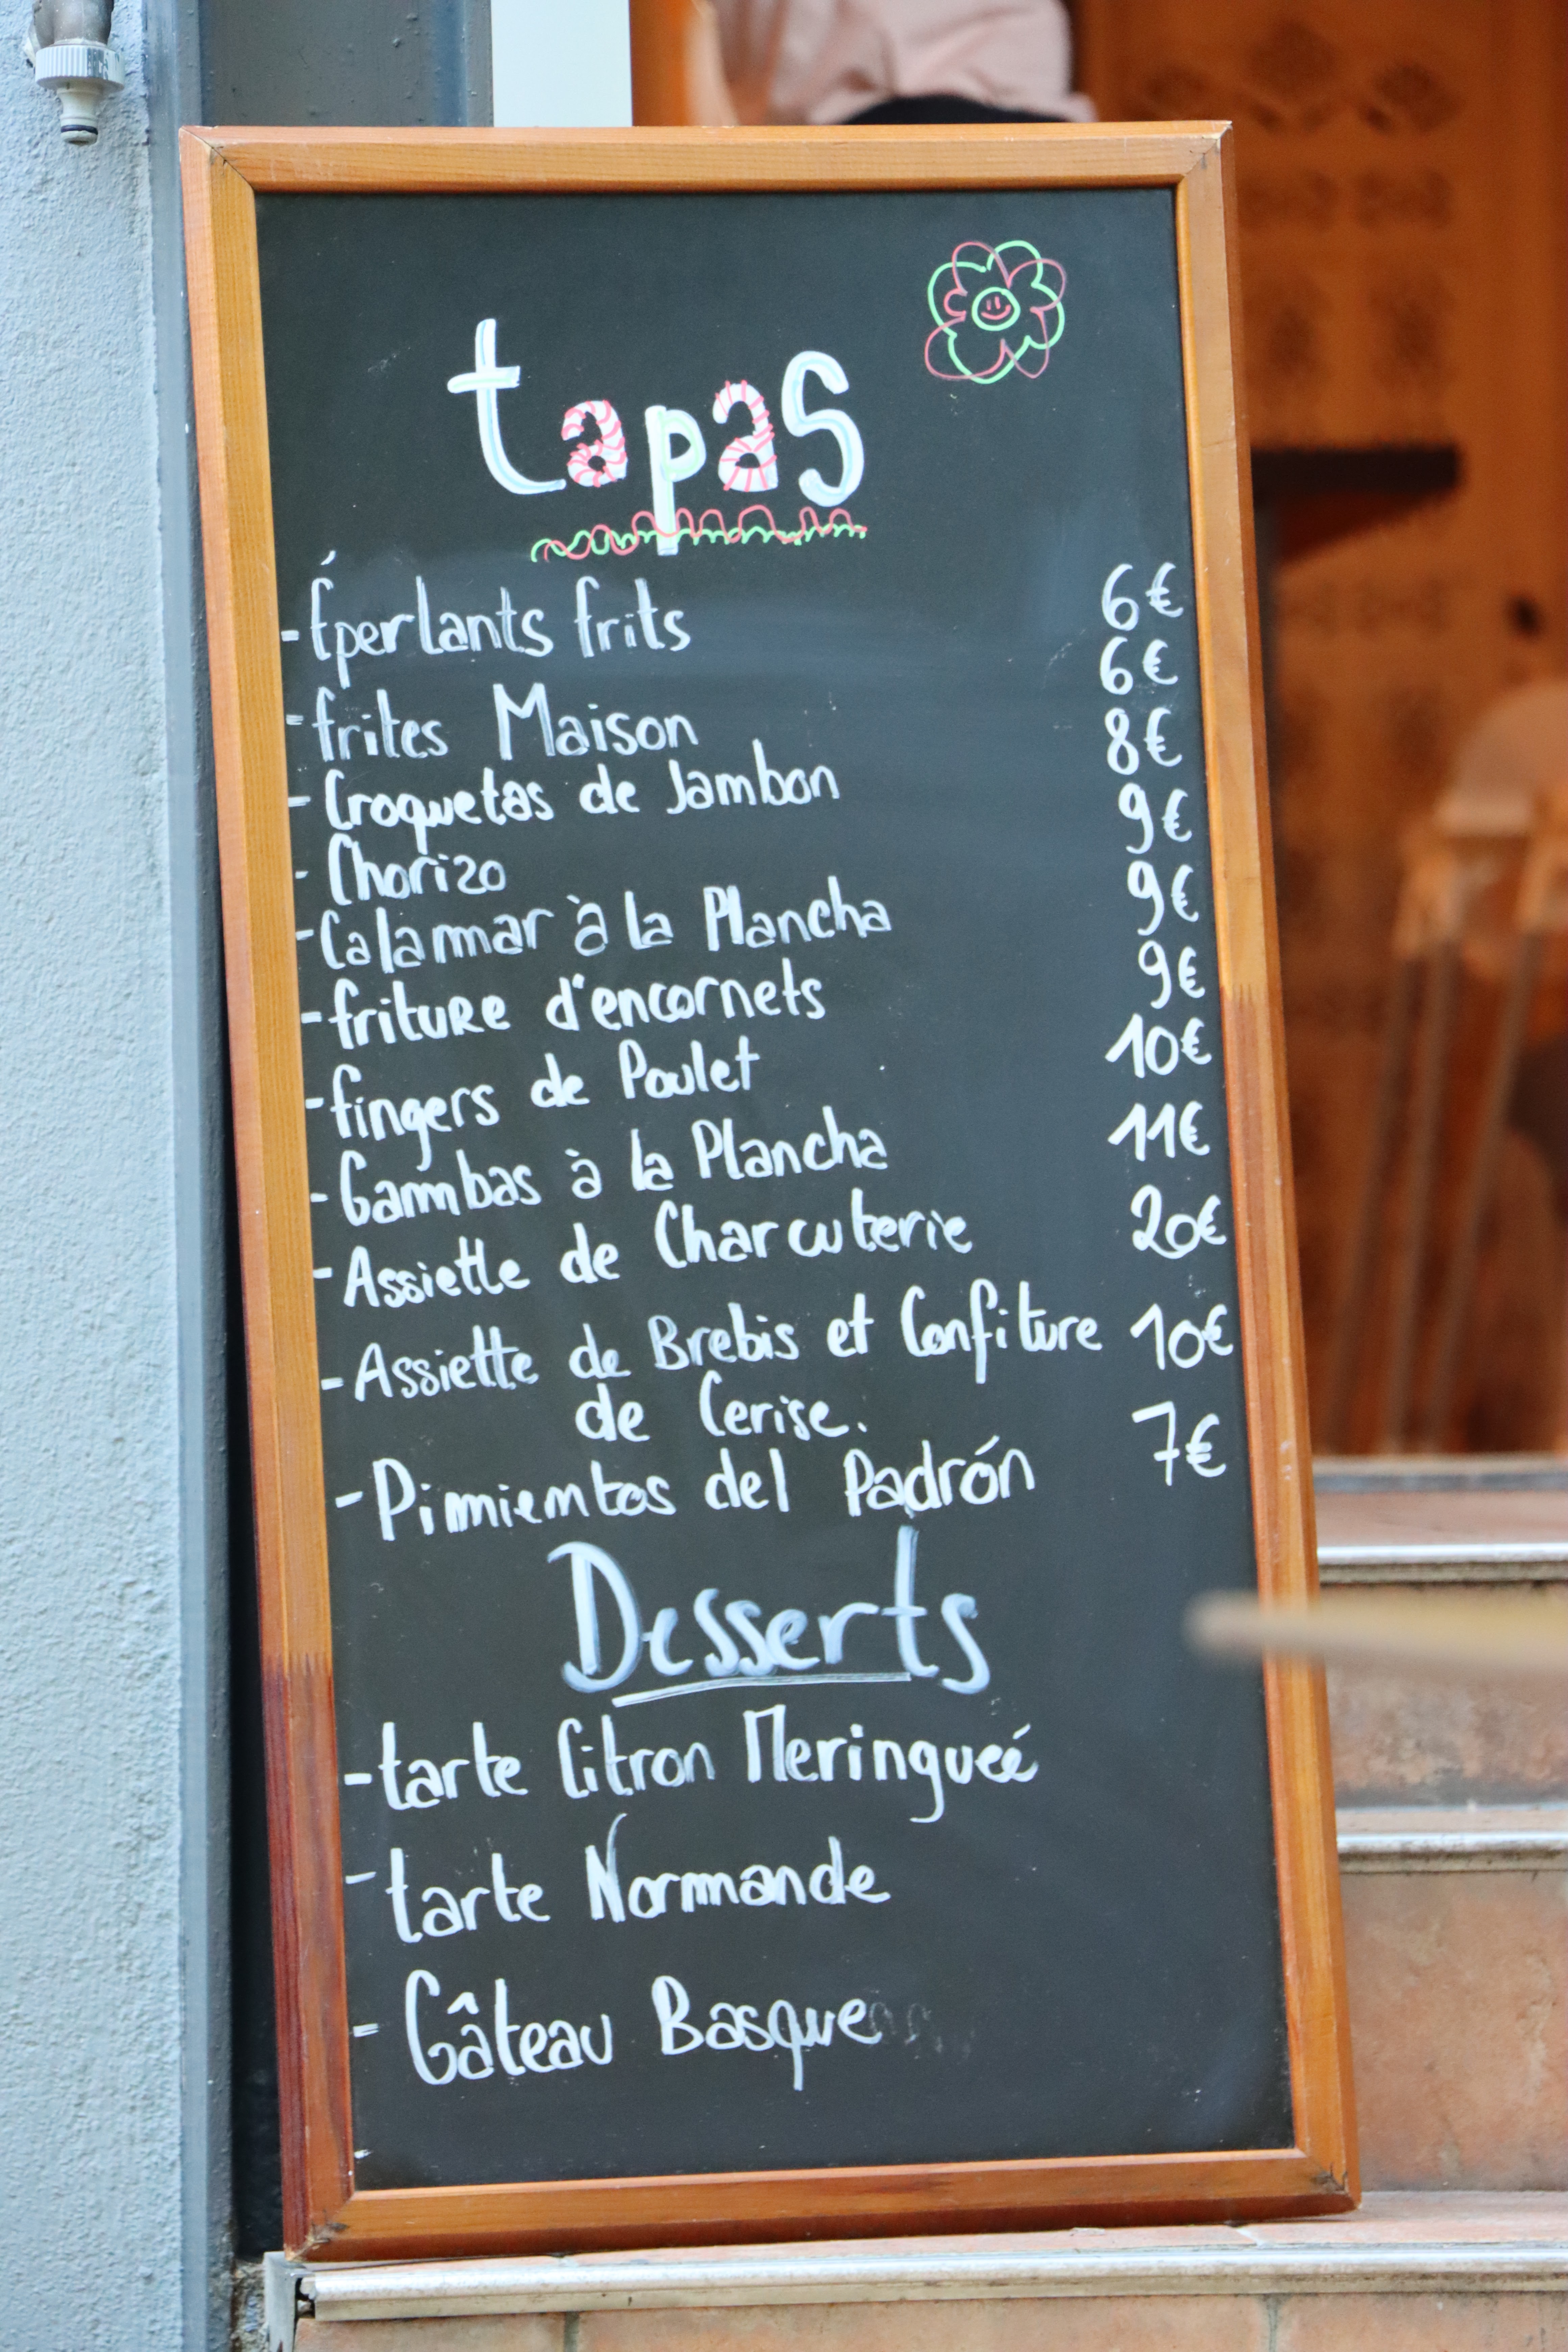 tapas
- Éperlants frits 6€
- frites Maison 6€
- Croquetas de Jambon 8€
- Chorizo 9€
- Calamar à la Plancha 9€
- friture d'encornets 9€
- fingers de Poulet 10€
- Gambas à la Plancha 11€
- Assiette de Charcuterie 20€
- Assiette de Brebis et Confiture 10€
de Cerise.
- Pimientos del Padrón 7€
Desserts
- tarte Citron Meringueé
- tarte Normande
- Gâteau Basque